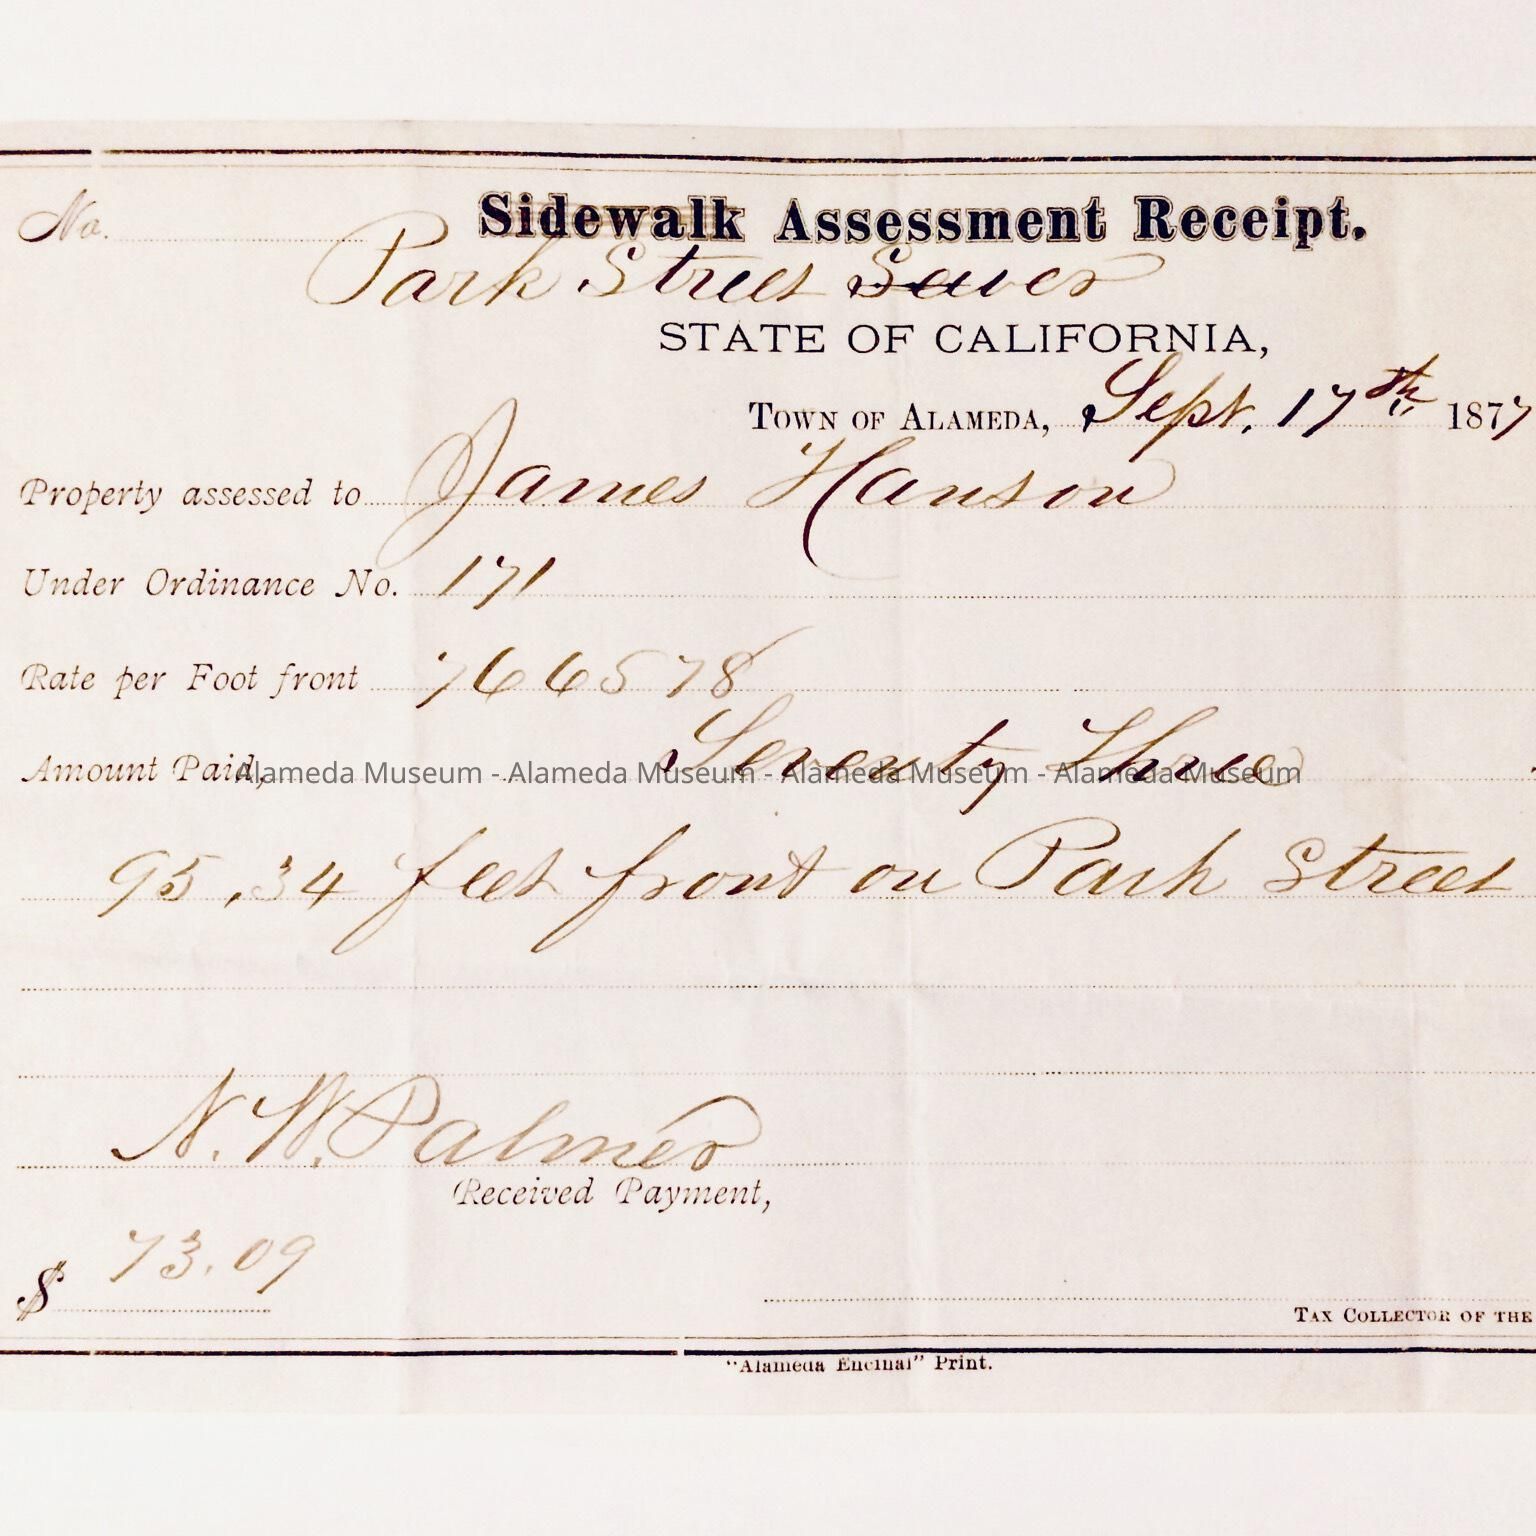 No.
Sidewalk Assessment Receipt.
Park Street Sewer
STATE OF CALIFORNIA,
TOWN OF ALAMEDA, Sept. 17th 1877
Property assessed to James Hanson
Under Ordinance No. 171
Rate per Foot front 766578
Amount Paid, Seventy Three
Alameda Museum - Alameda Museum - Alameda Museum - Alameda Museum
95.34 feet front on Park Street
N. W. Palmer
Received Payment,
$ 73.09
TAX COLLECTOR OF THE
"Alameda Encinal" Print.